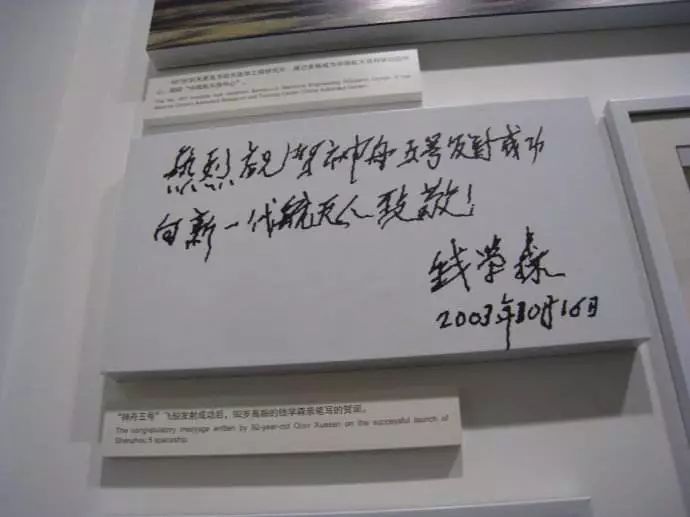 心，简称“中国航天员中心”。
The No. 507 Institute
Astronaut Research and Training Center
热烈祝贺神舟五号发射成功
向新一代航天人致敬！
钱学森
2003年10月16日
“神舟五号”飞船发射成功后，92岁高龄的钱学森亲笔写的贺词。
The congratulatory message written by 92-year-old Qian Xuesen on the successful launch of
Shenzhou 5 spaceship.